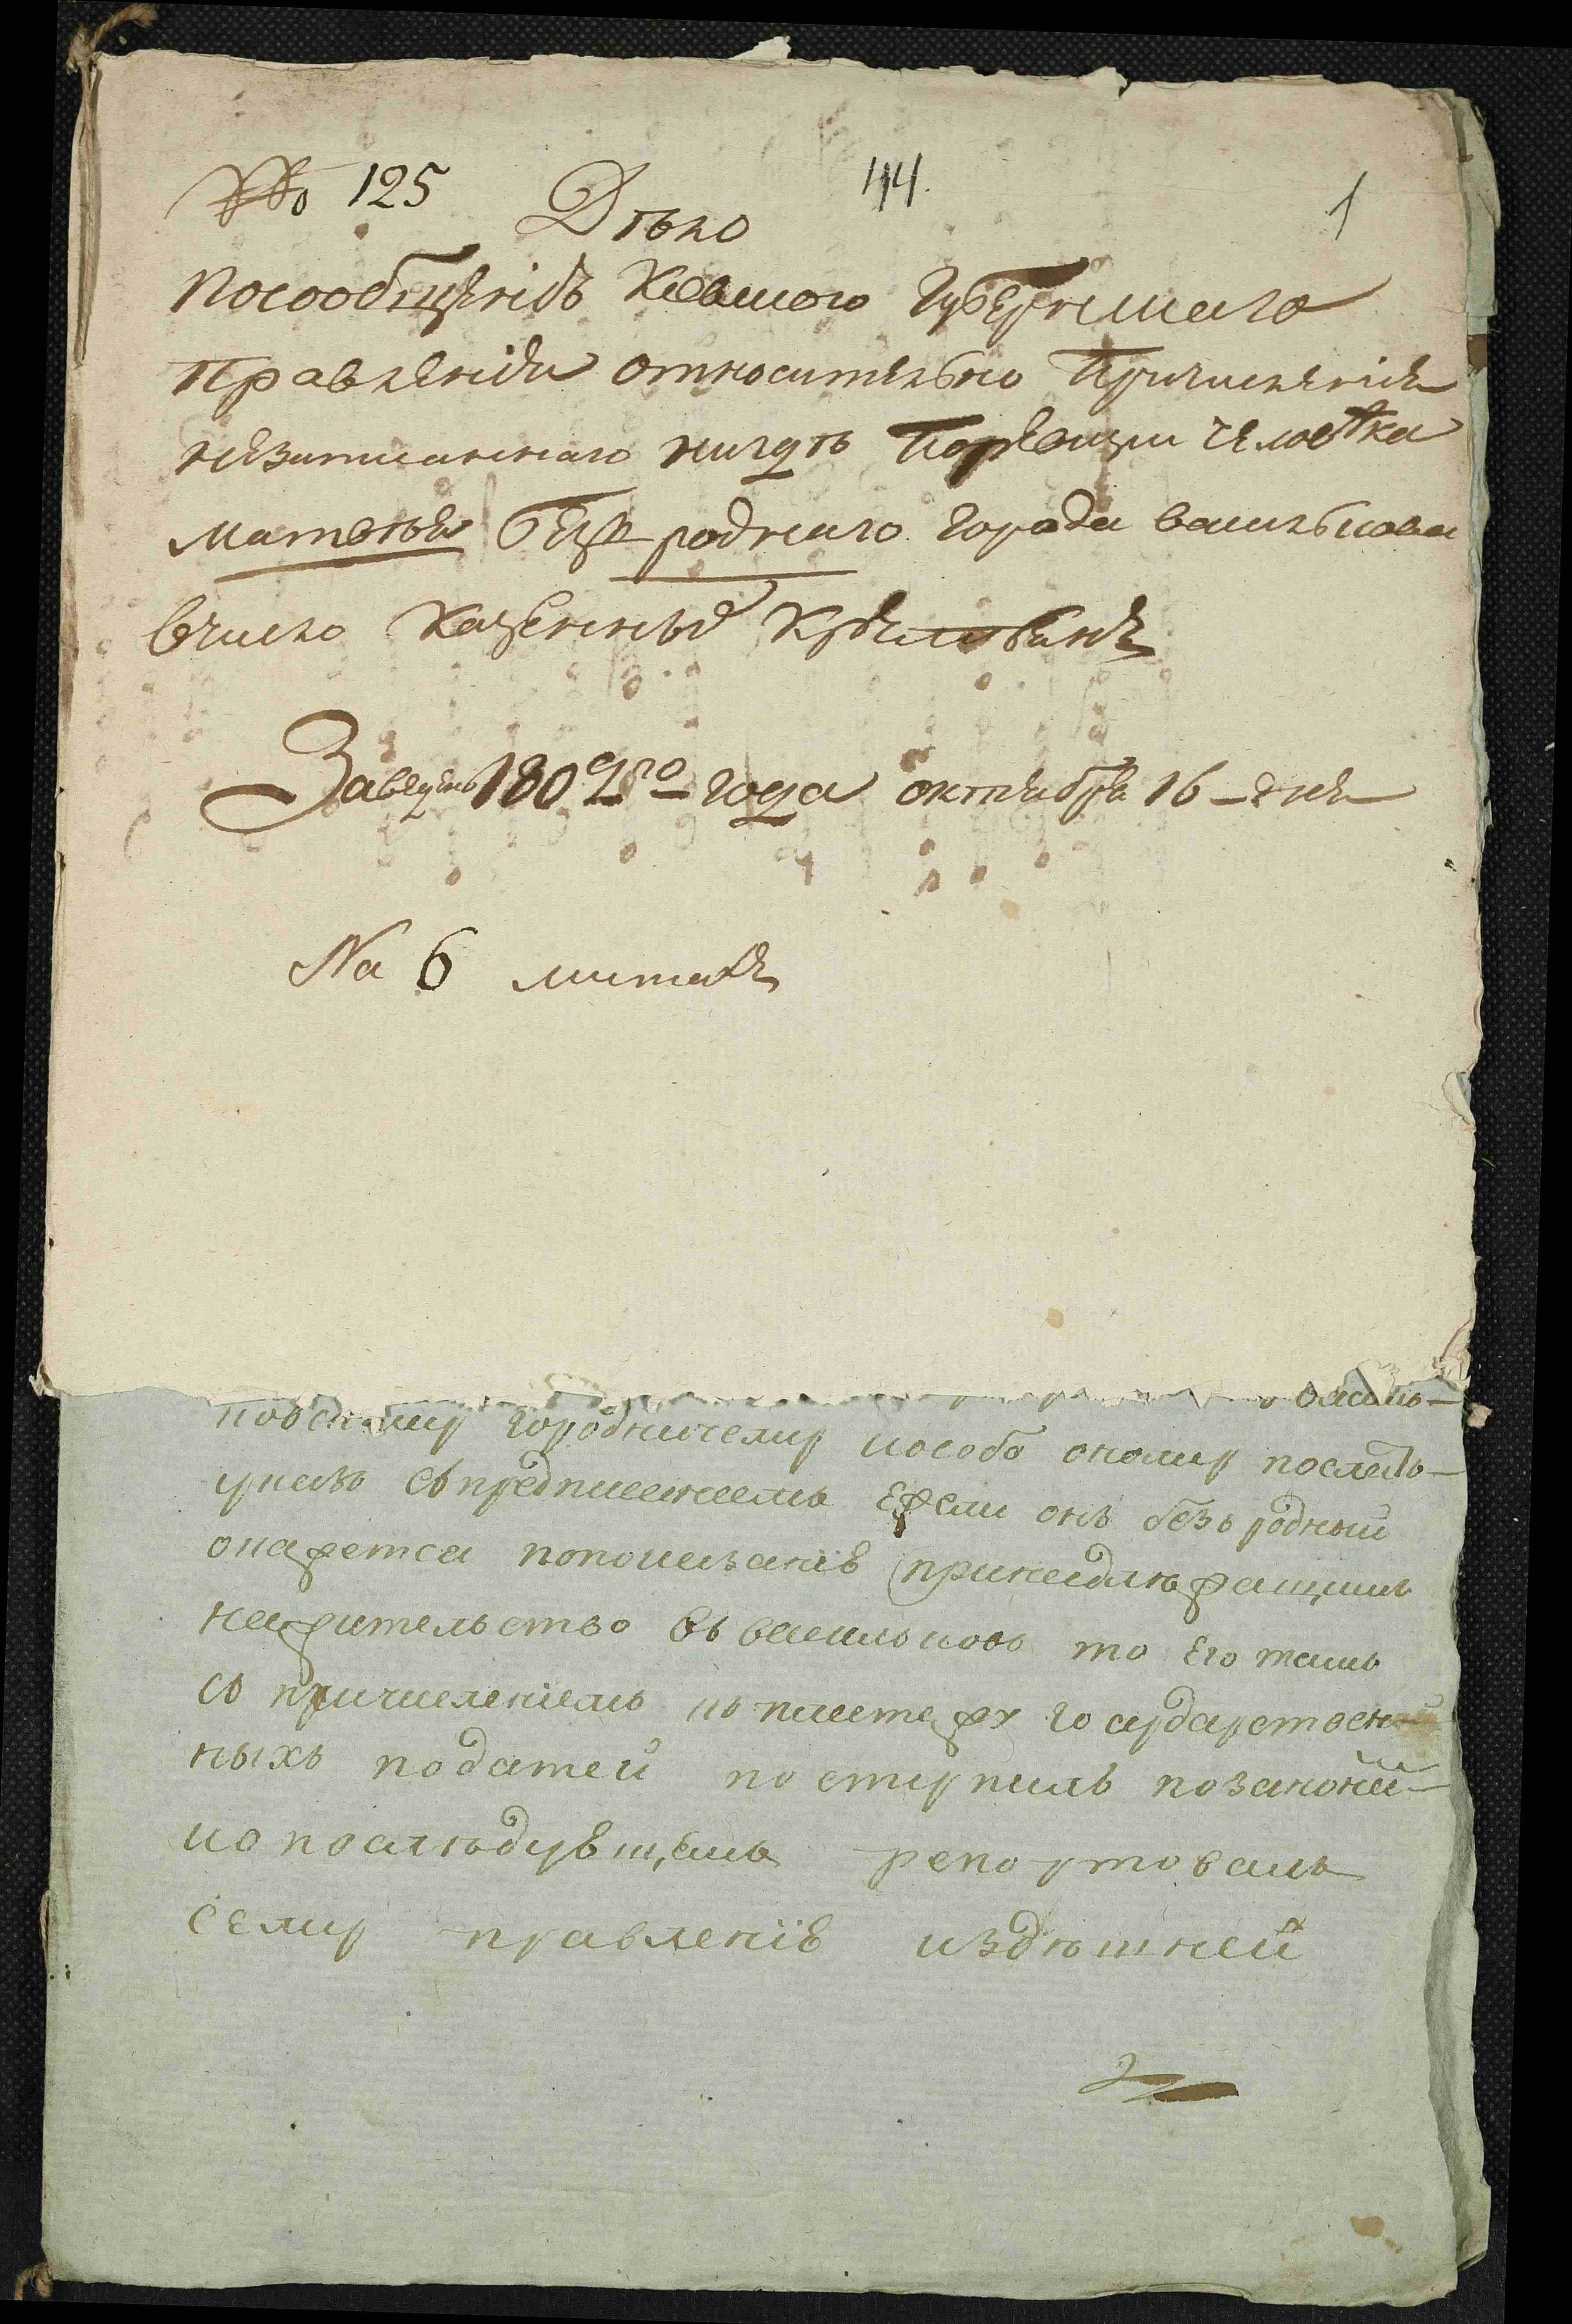 № 125
44.
1
Дѣло
посообщенію Киевского Губернскаго
Правленія относительно Причисленія
незаписаннаго нигдѣ Поревизіи человѣка
матвѣя безъ роднаго города василькова
вчисло казенныхъ крестьянъ
Заведено 1802го года октября 16 дня
На 6 листахъ
василь-
ковскому городничему пособо оному послать
указъ съпредписаниемъ ежели онъ безъ родный
окажется попоказанію принадлежащимъ
нажительство въ васильковъ то его тамъ
съ причислениемъ къ платежу государствен-
ныхъ податей поступилъ позаконамъ
ио послѣдуящемъ репортовалъ
сему правленію издѣшней